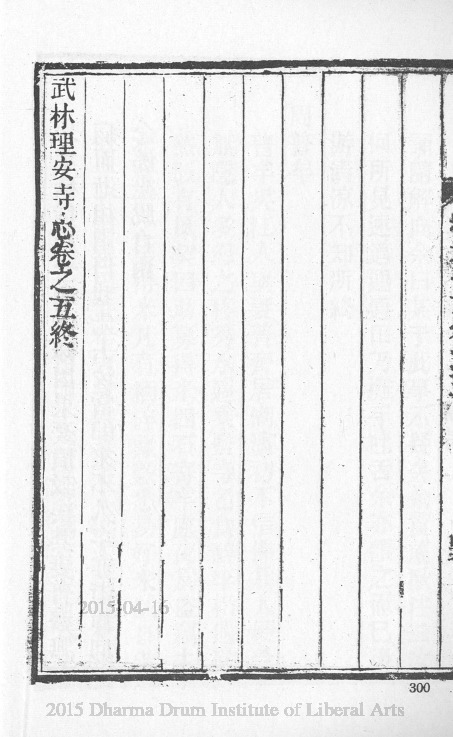 武林理安寺志卷之五終
300
2015-04-16
2015 Dharma Drum Institute of Liberal Arts